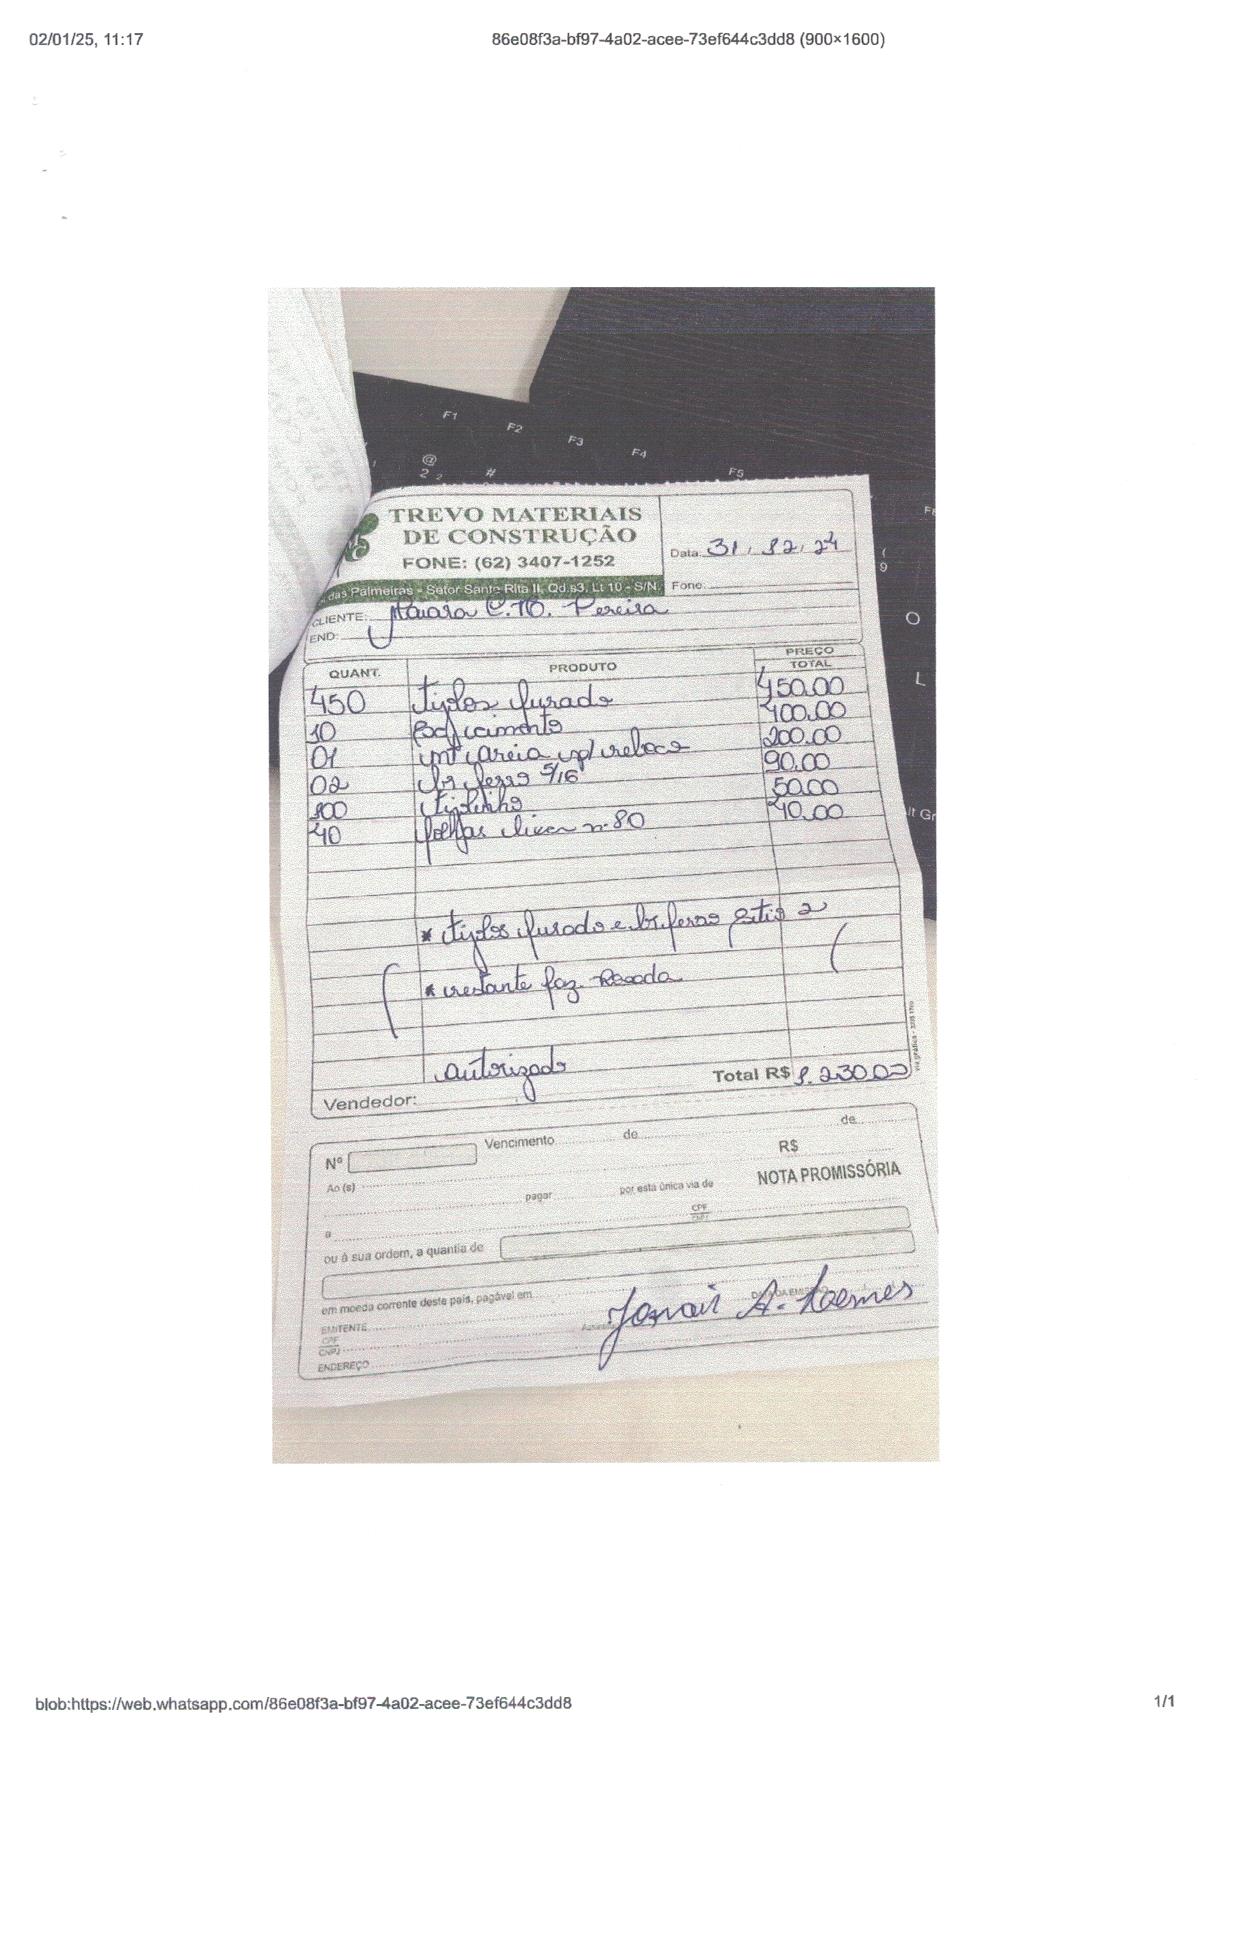 02/01/25, 11:17
86e08f3a-bf97-4a02-acee-73ef644c3dd8 (900×1600)
F1
F2
F3
F4
F5
@
2
#
9
O
L
lt Gr
TREVO MATERIAIS
DE CONSTRUÇÃO
FONE: (62) 3407-1252
das Palmeiras - Setor Santa Rita II, Qd.s3, Lt 10 - S/N
Data: 31, 12, 24
Fone:
CLIENTE: C. Pereira
END:
QUANT. PRODUTO PREÇO TOTAL
450 tijolos furado 450.00
10 cimento 400.00
01 mt areia p/ reboco 200.00
02 br ferro 5/16 90.00
100 tijolinho 50.00
40 folhas lixa n. 80 40.00
* tijolos furado e br. ferro
* restante faz.
autorizado
Total R$ 1.230.00
Vendedor:
Nº
Vencimento de de
R$
NOTA PROMISSÓRIA
Ao (s)
pagar por esta única via de
a
CPF
CNPJ
ou à sua ordem, a quantia de
em moeda corrente deste país, pagável em
EMITENTE
CPF
CNPJ
ENDEREÇO
A.
blob:https://web.whatsapp.com/86e08f3a-bf97-4a02-acee-73ef644c3dd8
1/1